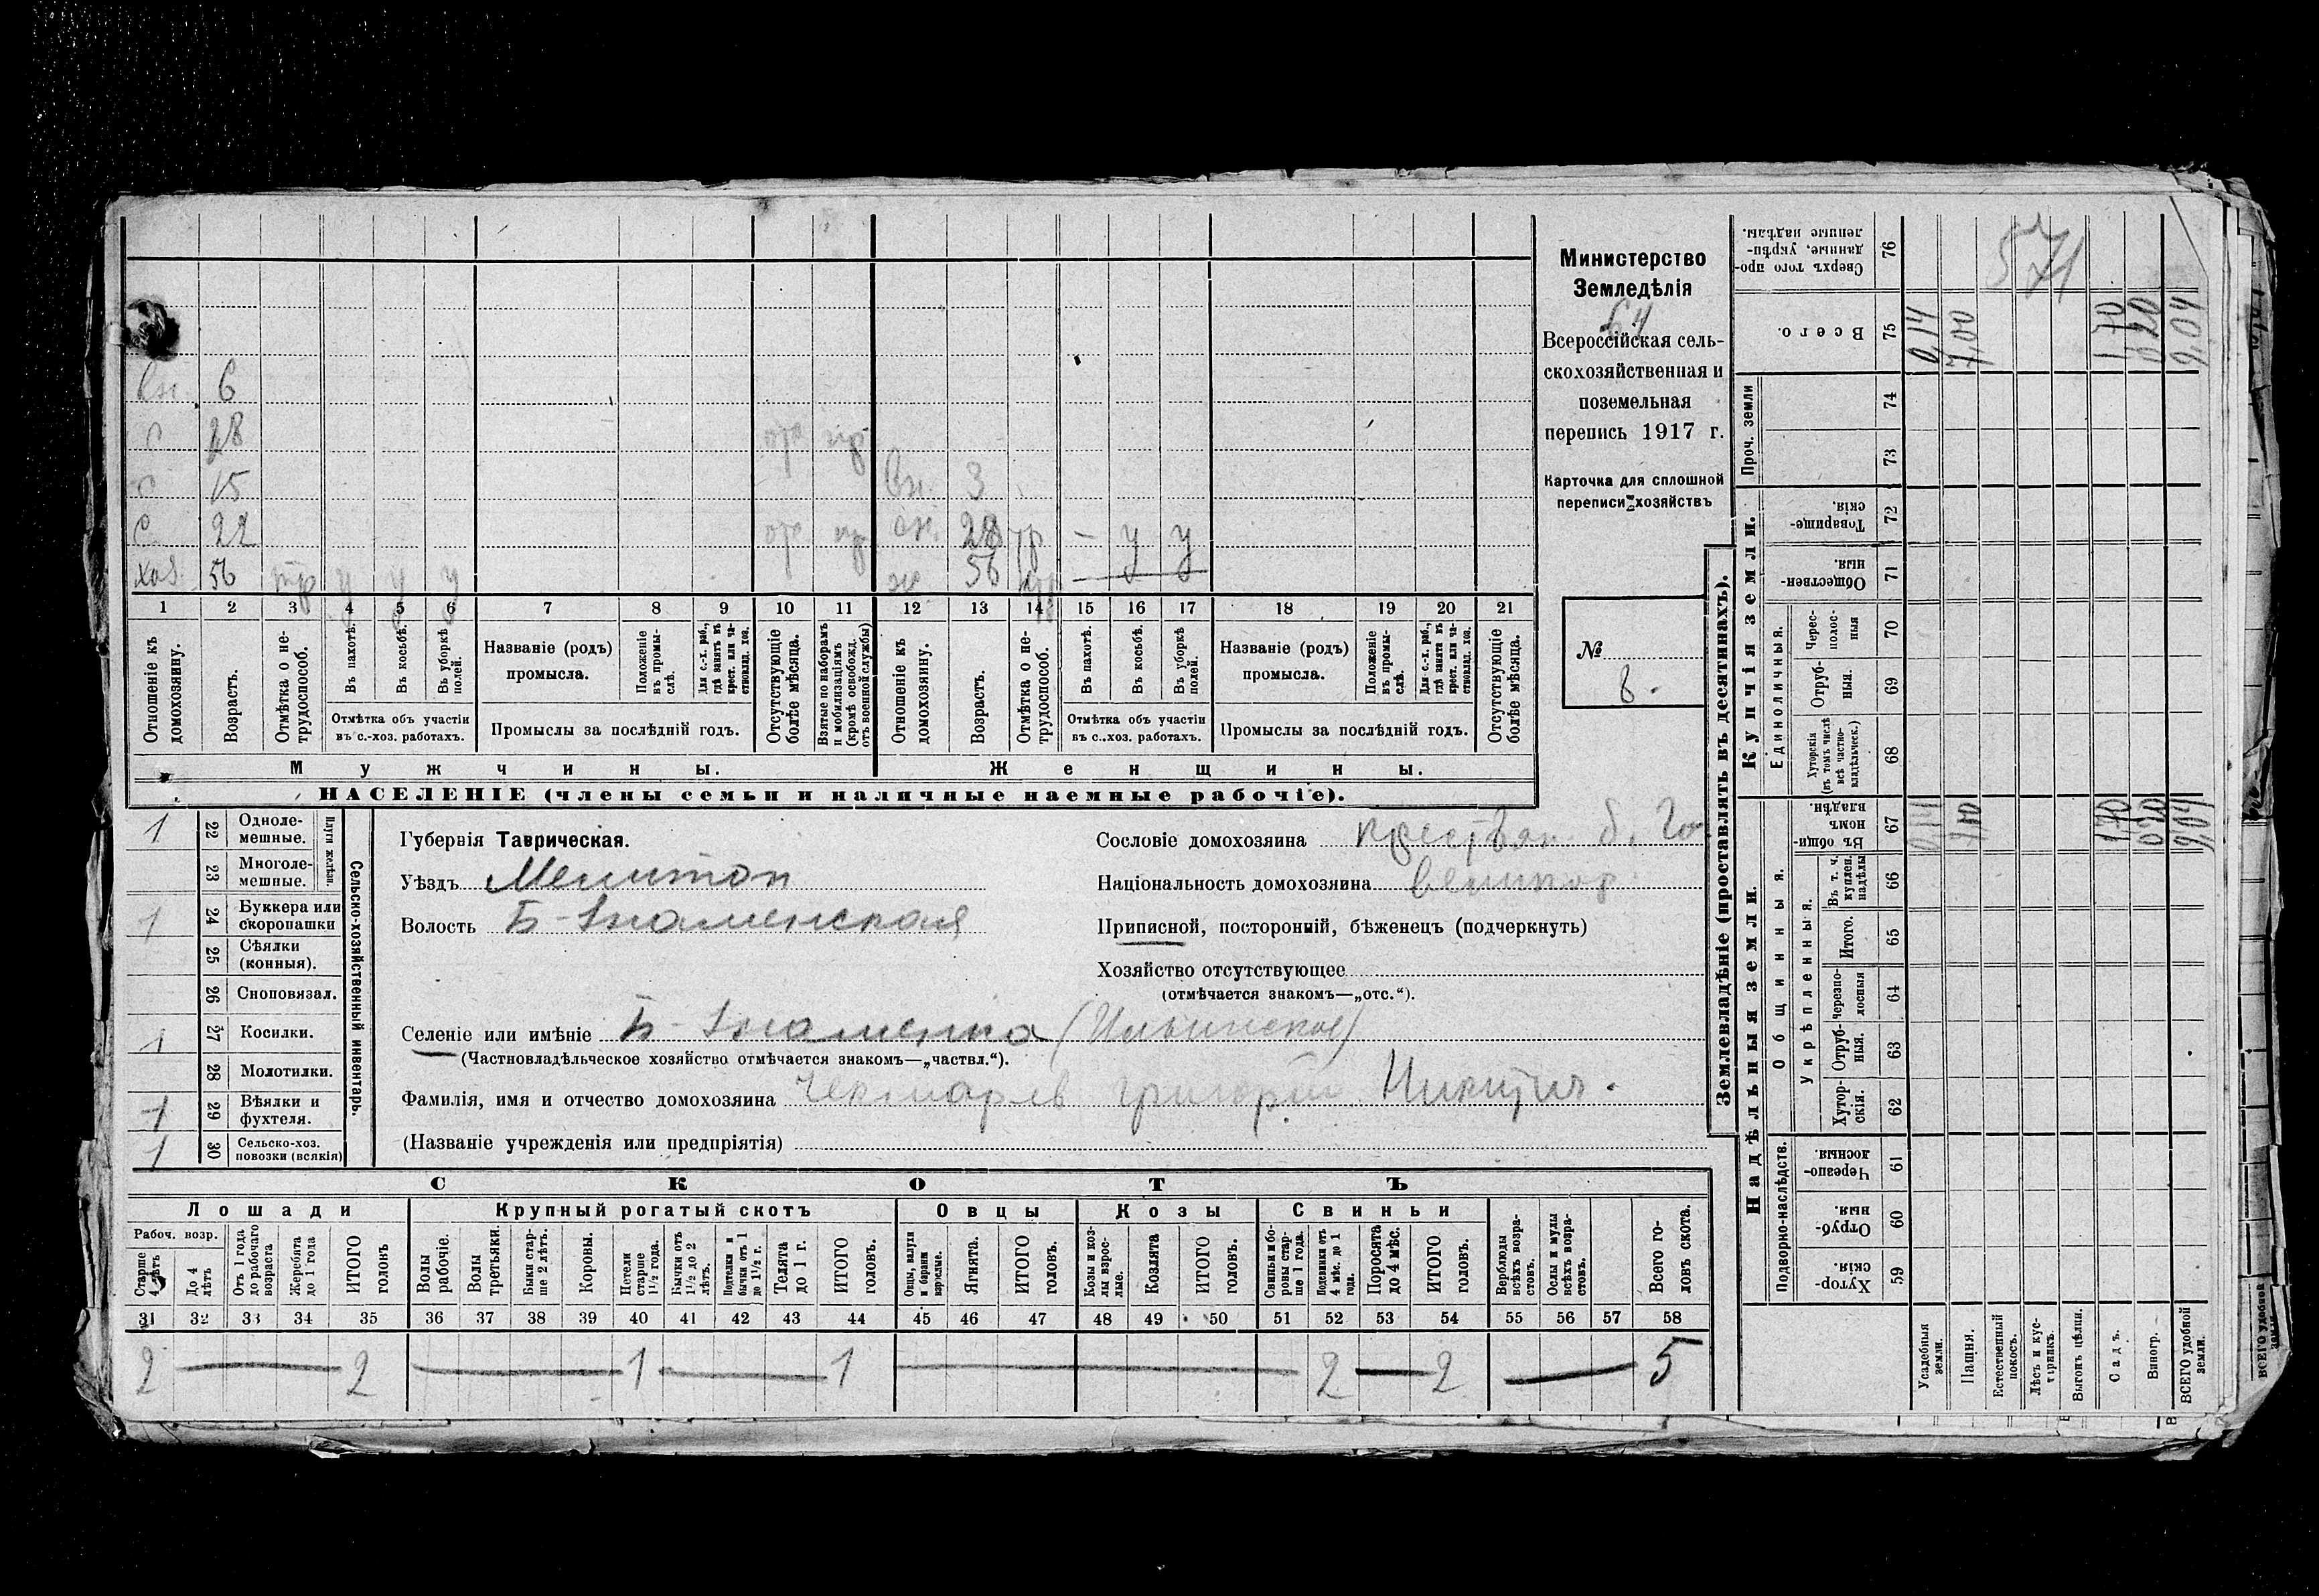 вн. 6
с 28 отс пр
с 15 вн. 3
с. 22 отс пр сн. 28 тр — у у
хоз. 56 тр у у у ж 56 тр
1 2 3 4 5 6 7 8 9 10 11 12 13 14 15 16 17 18 19 20 21
Отношеніе къ домохозяину.
Возрастъ.
Отмѣтка о не-трудоспособ.
Въ пахотѣ.
Въ косьбѣ.
Въ уборкѣ полей.
Названіе (родъ) промысла.
Положеніе въ промы-слѣ.
Для с.-х. раб., гдѣ занятъ въ крест. или ча-стновлад. хоз.
Отсутствующіе болѣе мѣсяца.
Взятые по наборамъ и мобилизаціямъ (кромѣ освобожд. отъ военной службы)
Отношеніе къ домохозяину.
Возрастъ.
Отмѣтка о не-трудоспособ.
Въ пахотѣ.
Въ косьбѣ.
Въ уборкѣ полей.
Названіе (родъ) промысла.
Положеніе въ промы-слѣ.
Для с.-х. раб., гдѣ занята въ крест. или ча-стновлад. хоз.
Отсутствующіе болѣе мѣсяца.
Отмѣтка объ участіи въ с.-хоз. работахъ.
Промыслы за послѣдній годъ.
Отмѣтка объ участіи въ с.-хоз. работахъ.
Промыслы за послѣдній годъ.
Мужчины. Женщины.
НАСЕЛЕНІЕ (члены семьи и наличные наемные рабочіе).
Министерство
Земледѣлія
64
Всероссійская сель-
скохозяйственная и
поземельная
перепись 1917 г.
Карточка для сплошной
переписи хозяйствъ
№
8.
1 22 Одноле-мешные.
23 Многоле-мешные.
Плуги желѣзн.
1 24 Буккера или скоропашки
25 Сѣялки (конныя).
26 Сноповязал.
1 27 Косилки.
28 Молотилки.
1 29 Вѣялки и фухтеля.
1 30 Сельско-хоз. повозки (всякія)
Сельско-хозяйственный инвентарь.
Губернія Таврическая.
Уѣздъ Мелитоп
Волость Б-Знаменская
Селеніе или имѣніе Б-Знаменка (Ильинское)
(Частновладѣльческое хозяйство отмѣчается знакомъ—„частвл.“).
Фамилія, имя и отчество домохозяина Чекмарев Григорий Никитич.
(Названіе учрежденія или предпріятія)
Сословіе домохозяина крестьян. б. Го
Національность домохозяина великор.
Приписной, посторонній, бѣженецъ (подчеркнуть)
Хозяйство отсутствующее
(отмѣчается знакомъ—„отс.“).
СКОТЪ
Лошади Крупный рогатый скотъ Овцы Козы Свиньи
Рабоч. возр.
Старше 4 лѣтъ
До 4 лѣтъ
Отъ 1 года до рабочаго возраста
Жеребята до 1 года
ИТОГО головъ
Волы рабочіе.
Волы третьяки.
Быки стар-ше 2 лѣтъ.
Коровы.
Нетели старше 1½ года.
Бычки отъ 1½ до 2 лѣтъ.
Подтелки и бычки отъ 1 до 1½ г.
Телята до 1 г.
ИТОГО головъ.
Овцы, валухи и бараны взрослые.
Ягнята.
ИТОГО головъ.
Козы и коз-лы взрос-лые.
Козлята
ИТОГО головъ.
Свиньи и бо-ровы стар-ше 1 года.
Подсвинки отъ 4 мѣс. до 1 года.
Поросята до 4 мѣс.
ИТОГО головъ.
Верблюды всѣхъ возра-стовъ.
Ослы и мулы всѣхъ возра-стовъ.
Всего го-ловъ скота.
31 32 33 34 35 36 37 38 39 40 41 42 43 44 45 46 47 48 49 50 51 52 53 54 55 56 57 58
2 — 2 — 1 — 1 — 2 — 2 — 5
Землевладѣніе (проставлять въ десятинахъ).
Надѣльныя земли. Купчія земли. Проч. земли
Подворно-наслѣдств.
Общинныя.
Укрѣпленныя.
Единоличныя.
Хутор-скія. 59
Отруб-ныя. 60
Черезпо-лосныя. 61
Хутор-скія. 62
Отруб-ныя. 63
Черезпо-лосныя 64
Итого. 65
Въ т. ч. куплен. надѣлы 66
Въ общи-номъ владѣн. 67
Хуторскія (въ томъ числѣ всѣ частно-владѣльческ.) 68
Отруб-ныя. 69
Черес-полос-ныя 70
Обществен-ныя. 71
Товарище-скія. 72
73
74
Всего. 75
Сверхъ того про-данные, укрѣп-ленные надѣлы. 76
571
Усадебныя земли. 0,14 0,14
Пашня. 7,00 7,00
Естественный покосъ.
Лѣсъ и кус-тарникъ.
Выгонъ цѣлин.
Садъ. 1,70 1,70
Виногр. 0,20 0,20
ВСЕГО удобной земли. 9,04 9,04
ВСЕГО удобной земли.